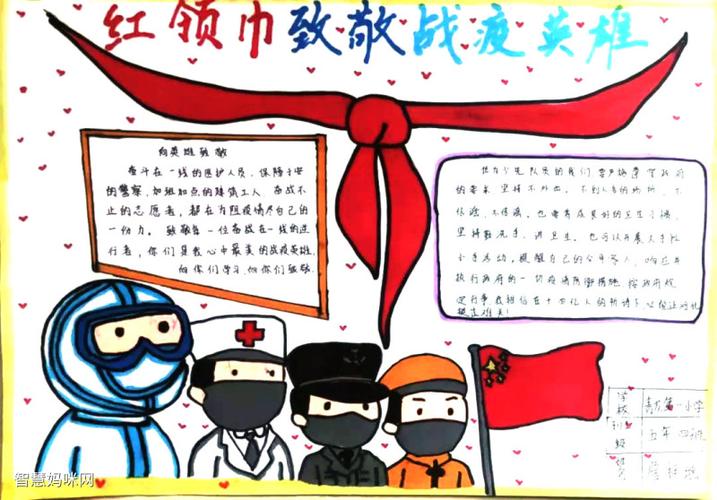 红领巾致敬战疫英雄
向英雄致敬
奋斗在一线的医护人员,保障平安
的警察,加班加点的建筑工人,奋战不
止的志愿者,都在为阻疫情尽自己的
一份力。致敬每一位奋战在一线的逆
行者,你们是我心中最美的战疫英雄,
向你们学习,向你们致敬.
作为少先队员的我们要严格遵守政府
的要求坚持不外出,不到人多的场所,不
信谣,不传谣,也要养成良好的卫生习惯,
坚持勤洗手,讲卫生,也可以开展大手拉
小手活动,提醒自己的父母家人,响应并
执行政府的一切疫情防御措施,按政府规
定行事,我相信在十四亿人的祈祷下,必能让
难关!
学校 第一小学
班级 五年四班
姓名
智慧妈咪网